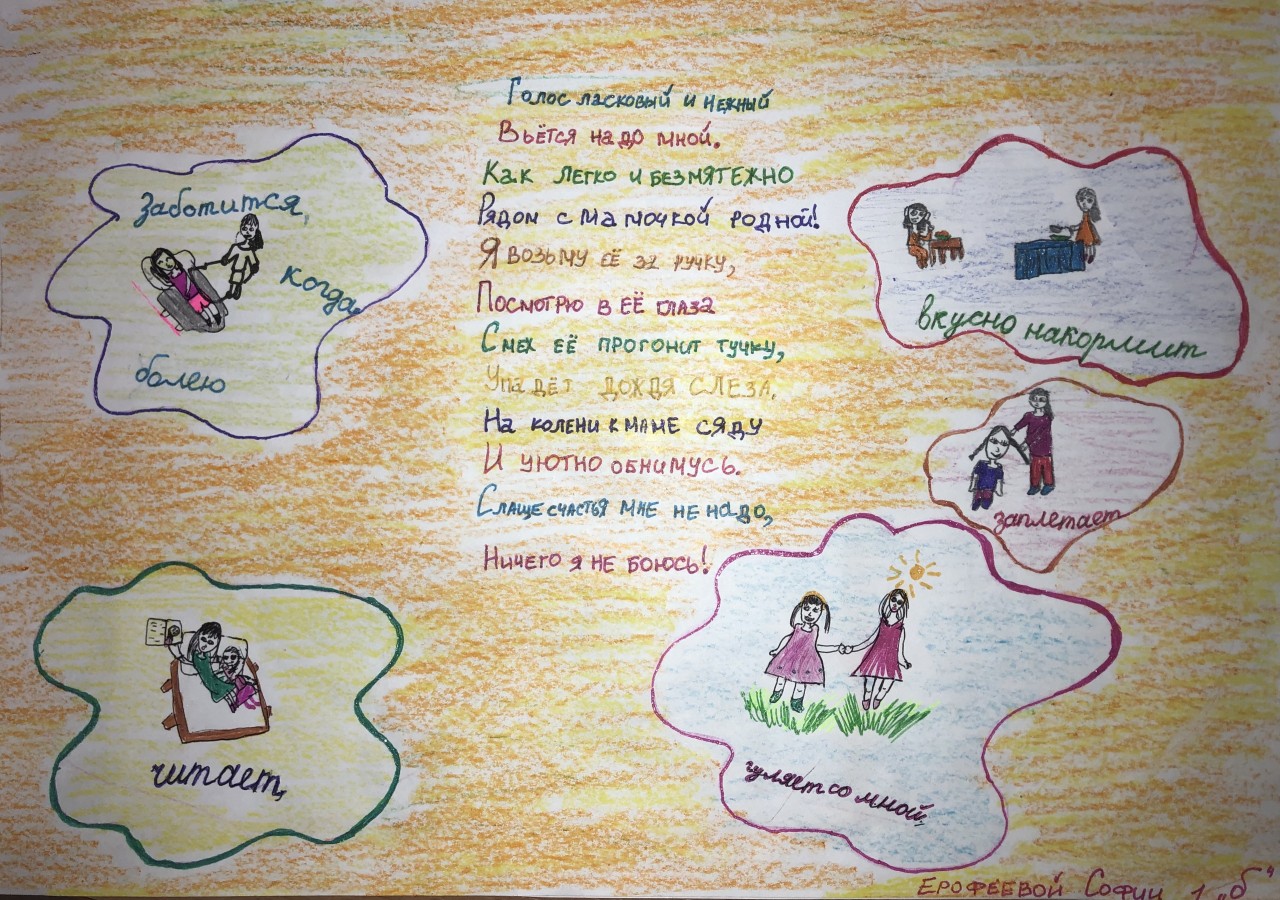 Голос ласковый и нежный
Вьётся надо мной.
Как легко и безмятежно
Рядом с мамочкой родной!
Я возьму её за ручку,
Посмотрю в её глаза
Смех её прогонит тучку,
Упадёт дождя слеза.
На колени к маме сяду
И уютно обнимусь.
Слаще счастья мне не надо,
Ничего я не боюсь!
Заботится,
когда
болею
вкусно накормит
заплетает
читает,
гуляет со мной,
Ерофеевой Софии 1 „б"